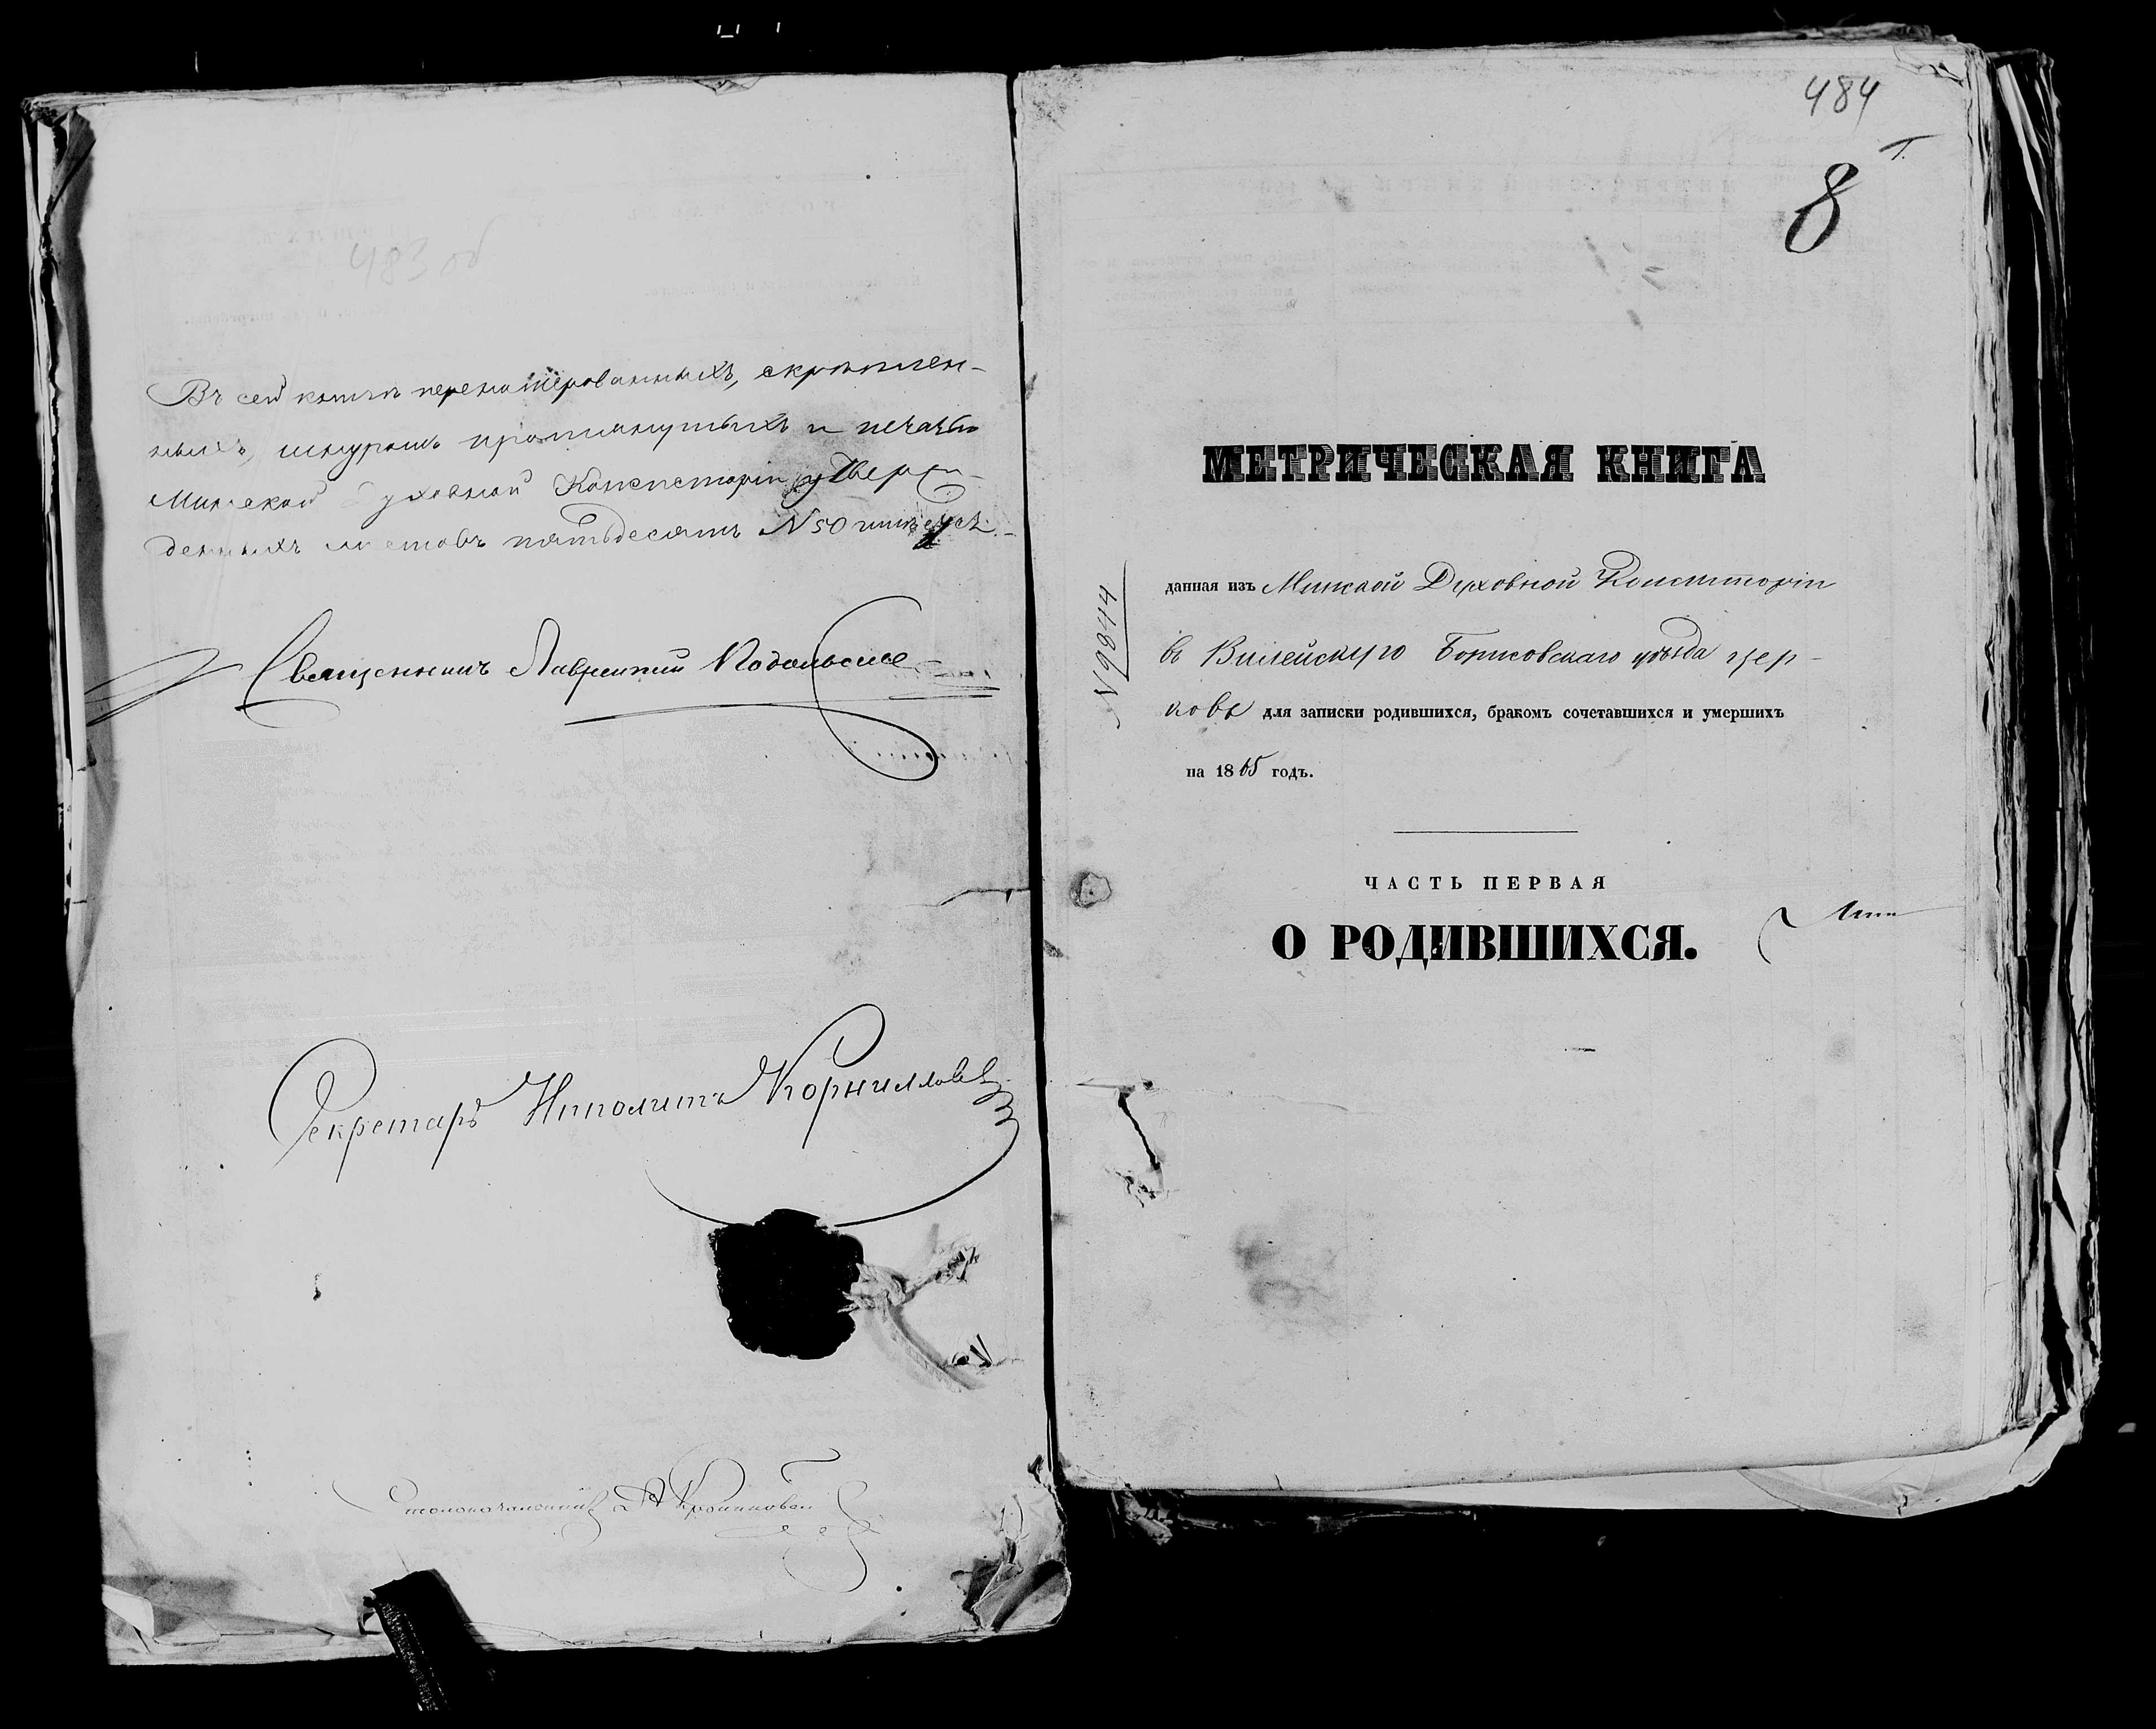 483 об
Въ сей книгѣ перенумерованныхъ, скрѣплен-
ныхъ, шнуромъ протянутыхъ и печатью
Минской Духовной Консисторіи утверж-
денныхъ листовъ пятьдесятъ N 50
Священникъ Лаврентій
Секретарь Ипполитъ Корниловъ
Столоначальникъ
484
8
МЕТРИЧЕСКАЯ КНИГА
N 9844
данная изъ Минской Духовной Консисторіи
въ Вилейскую Борисовскаго уѣзда цер-
ковь для записки родившихся, бракомъ сочетавшихся и умершихъ
на 1865 годъ.
ЧАСТЬ ПЕРВАЯ
О РОДИВШИХСЯ.